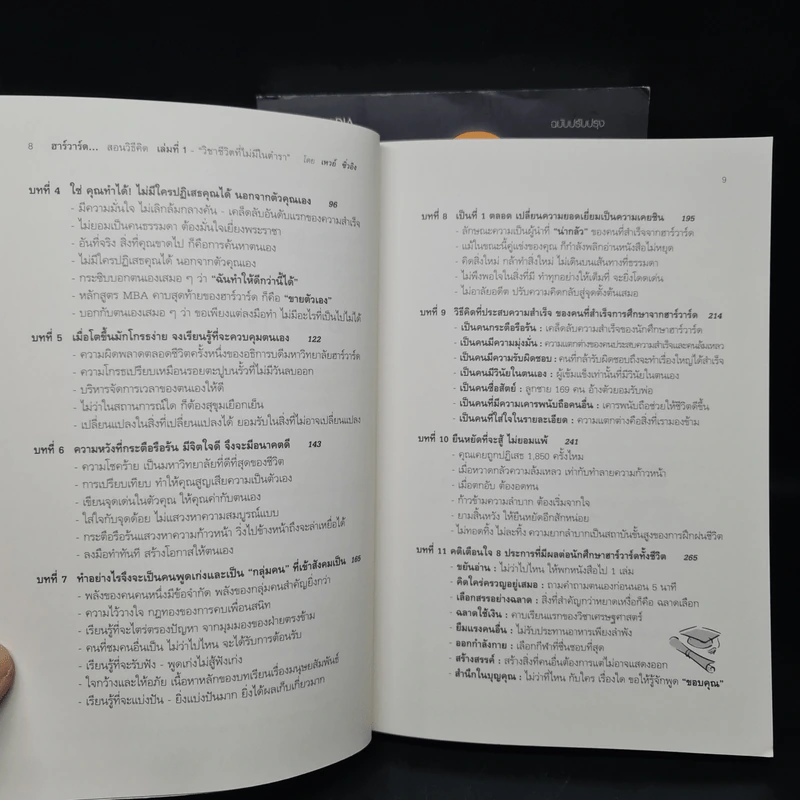 ฉบับปรับปรุง
8 ฮาร์วาร์ด... สอนวิธีคิด เล่มที่ 1 - "วิชาชีวิตที่ไม่มีในตำรา" โดย เหวย์ ซิ่วอิง
บทที่ 4 ใช่ คุณทำได้! ไม่มีใครปฏิเสธคุณได้ นอกจากตัวคุณเอง 96
- มีความมั่นใจ ไม่เลิกล้มกลางคัน - เคล็ดลับอันดับแรกของความสำเร็จ
- ไม่ยอมเป็นคนธรรมดา ต้องมั่นใจเยี่ยงพระราชา
- อันที่จริง สิ่งที่คุณขาดไป ก็คือการค้นหาตนเอง
- ไม่มีใครปฏิเสธคุณได้ นอกจากตัวคุณเอง
- กระซิบบอกตนเองเสมอ ๆ ว่า "ฉันทำให้ดีกว่านี้ได้"
- หลักสูตร MBA คาบสุดท้ายของฮาร์วาร์ด ก็คือ "ขายตัวเอง"
- บอกกับตนเองเสมอ ๆ ว่า ขอเพียงแต่ลงมือทำ ไม่มีอะไรที่เป็นไปไม่ได้
บทที่ 5 เมื่อโตขึ้นมักโกรธง่าย จงเรียนรู้ที่จะควบคุมตนเอง 122
- ความผิดพลาดตลอดชีวิตครั้งหนึ่งของอธิการบดีมหาวิทยาลัยฮาร์วาร์ด
- ความโกรธเปรียบเหมือนรอยตะปูบนรั้วที่ไม่มีวันลบออก
- บริหารจัดการเวลาของตนเองให้ดี
- ไม่ว่าในสถานการณ์ใด ก็ต้องสุขุมเยือกเย็น
- เปลี่ยนแปลงในสิ่งที่เปลี่ยนแปลงได้ ยอมรับในสิ่งที่ไม่อาจเปลี่ยนแปลง
บทที่ 6 ความหวังที่กระตือรือร้น มีจิตใจดี จึงจะมีอนาคตดี 143
- ความโชคร้าย เป็นมหาวิทยาลัยที่ดีที่สุดของชีวิต
- การเปรียบเทียบ ทำให้คุณสูญเสียความเป็นตัวเอง
- เขียนจุดเด่นในตัวคุณ ให้คุณค่ากับตนเอง
- ใส่ใจกับจุดด้อย ไม่แสวงหาความสมบูรณ์แบบ
- กระตือรือร้นแสวงหาความก้าวหน้า วิ่งไปข้างหน้าถึงจะล่าเหยื่อได้
- ลงมือทำทันที สร้างโอกาสให้ตนเอง
บทที่ 7 ทำอย่างไรจึงจะเป็นคนพูดเก่งและเป็น "กลุ่มคน" ที่เข้าสังคมเป็น 165
- พลังของคนคนหนึ่งมีข้อจำกัด พลังของกลุ่มคนสำคัญยิ่งกว่า
- ความไว้วางใจ กฎทองของการคบเพื่อนสนิท
- เรียนรู้ที่จะไตร่ตรองปัญหา จากมุมมองของฝ่ายตรงข้าม
- คนที่ชมคนอื่นเป็น ไม่ว่าไปไหน จะได้รับการต้อนรับ
- เรียนรู้ที่จะรับฟัง - พูดเก่งไม่สู้ฟังเก่ง
- ใจกว้างและให้อภัย เนื้อหาหลักของบทเรียนเรื่องมนุษยสัมพันธ์
- เรียนรู้ที่จะแบ่งปัน - ยิ่งแบ่งปันมาก ยิ่งได้ผลเก็บเกี่ยวมาก
9
บทที่ 8 เป็นที่ 1 ตลอด เปลี่ยนความยอดเยี่ยมเป็นความเคยชิน 195
- ลักษณะความเป็นผู้นำที่ "น่ากลัว" ของคนที่สำเร็จจากฮาร์วาร์ด
- แม้ในขณะนี้คู่แข่งของคุณ ก็กำลังพลิกอ่านหนังสือไม่หยุด
- คิดสิ่งใหม่ กล้าทำสิ่งใหม่ ไม่เดินบนเส้นทางที่ธรรมดา
- ไม่พึงพอใจในสิ่งที่มี ทำทุกอย่างให้เต็มที่ จะยิ่งโดดเด่น
- ไม่อาลัยอดีต ปรับความคิดกลับสู่จุดตั้งต้นเสมอ
บทที่ 9 วิธีคิดที่ประสบความสำเร็จ ของคนที่สำเร็จการศึกษาจากฮาร์วาร์ด 214
- เป็นคนกระตือรือร้น : เคล็ดลับความสำเร็จของนักศึกษาฮาร์วาร์ด
- เป็นคนมีความมุ่งมั่น : ความแตกต่างของคนประสบความสำเร็จและคนล้มเหลว
- เป็นคนมีความรับผิดชอบ : คนที่กล้ารับผิดชอบถึงจะทำเรื่องใหญ่ได้สำเร็จ
- เป็นคนมีวินัยในตนเอง : ผู้เข้มแข็งเท่านั้นที่มีวินัยในตนเอง
- เป็นคนซื่อสัตย์ : ลูกชาย 169 คน อ้างตัวยอมรับพ่อ
- เป็นคนที่มีความเคารพนับถือคนอื่น : เคารพนับถือช่วยให้ชีวิตดีขึ้น
- เป็นคนที่ใส่ใจในรายละเอียด : ความแตกต่างคือสิ่งที่เรามองข้าม
บทที่ 10 ยืนหยัดที่จะสู้ ไม่ยอมแพ้ 241
- คุณเคยถูกปฏิเสธ 1,850 ครั้งไหม
- เมื่อหวาดกลัวความล้มเหลว เท่ากับทำลายความก้าวหน้า
- เมื่อตกอับ ต้องอดทน
- ก้าวข้ามความลำบาก ต้องเริ่มจากใจ
- ยามสิ้นหวัง ให้ยืนหยัดอีกสักหน่อย
- ไม่ทอดทิ้ง ไม่ละทิ้ง ความยากลำบากเป็นสถาบันชั้นสูงของการฝึกฝนชีวิต
บทที่ 11 คติเตือนใจ 8 ประการที่มีผลต่อนักศึกษาฮาร์วาร์ดทั้งชีวิต 265
- ขยันอ่าน : ไม่ว่าไปไหน ให้พกหนังสือไป 1 เล่ม
- คิดใคร่ครวญอยู่เสมอ : ถามคำถามตนเองก่อนนอน 5 นาที
- เลือกสรรอย่างฉลาด : สิ่งที่สำคัญกว่าหยาดเหงื่อก็คือ ฉลาดเลือก
- ฉลาดใช้เงิน : คาบเรียนแรกของวิชาเศรษฐศาสตร์
- ยืมแรงคนอื่น : ไม่รับประทานอาหารเพียงลำพัง
- ออกกำลังกาย : เลือกกีฬาที่ชื่นชอบที่สุด
- สร้างสรรค์ : สร้างสิ่งที่คนอื่นต้องการแต่ไม่อาจแสดงออก
- สำนึกในบุญคุณ : ไม่ว่าที่ไหน กับใคร เรื่องใด ขอให้รู้จักพูด "ขอบคุณ"